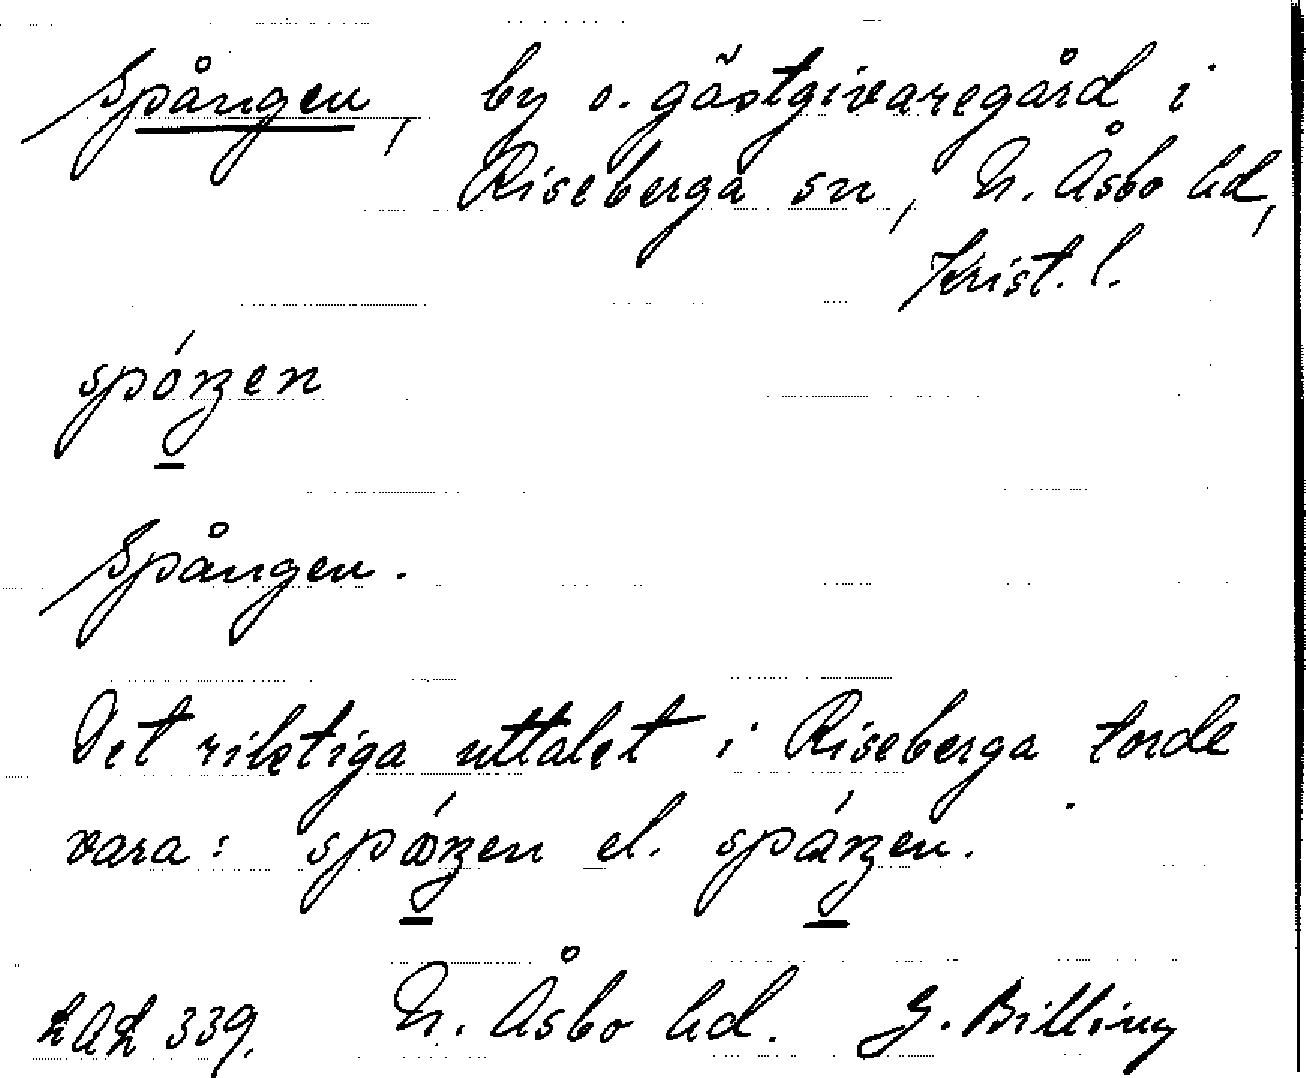 Spången, by o. gästgivaregård i
Riseberga sn, N. Åsbo hd,
Krist. l.
spóŋen
Spången.
Det riktiga uttalet i Riseberga torde
vara: spɷ́ŋen el. spáŋen.
LAL 339. N. Åsbo hd. G. Billing